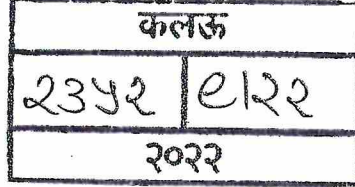 कलऊ
२३५२ ९/२२
२०२२